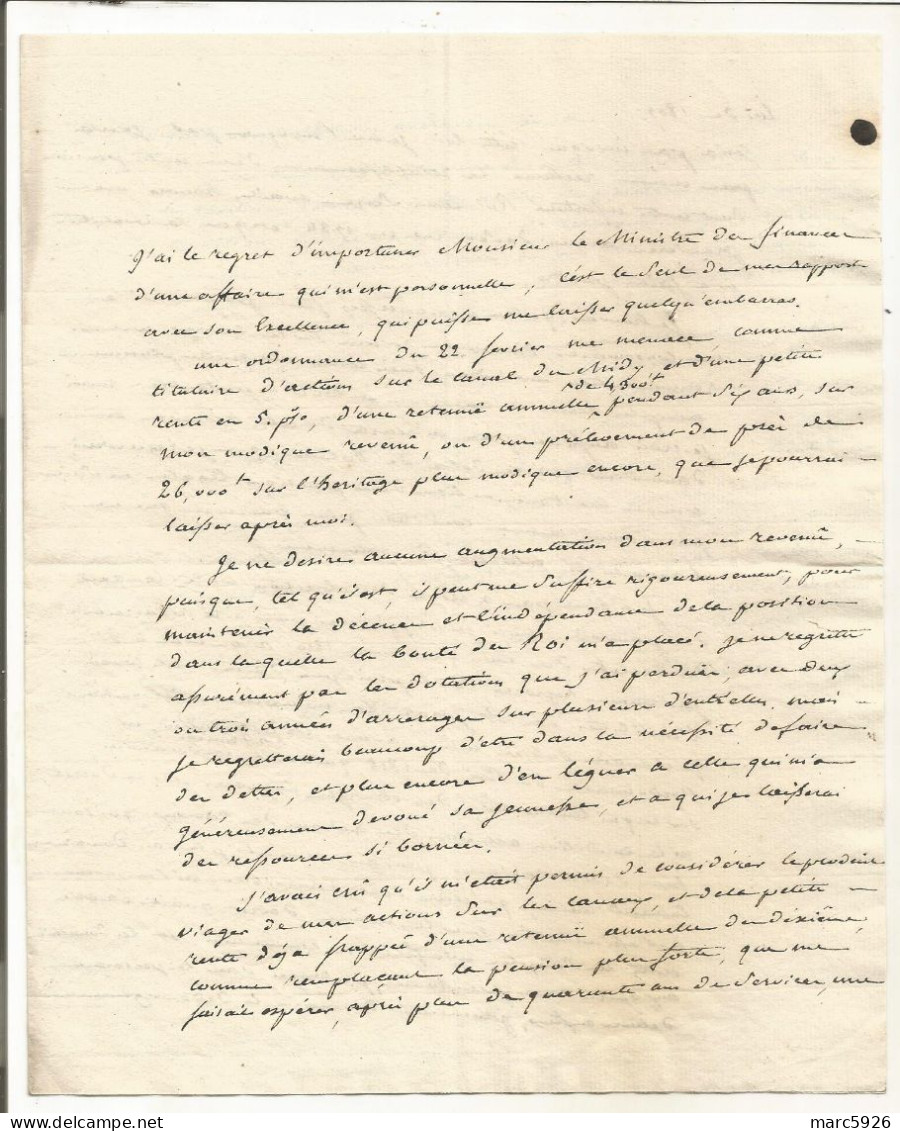 J'ai le regret d'importuner Monsieur le Ministre des finances
d'une affaire qui m'est personnelle, c'est le seul de mes rapports
avec son Excellence, qui puisse me laisser quelqu'embarras.
une ordonnance du 22 fevrier me menace, comme
titulaire d'actions sur le canal du Midy, et d'une petite
rente en 5. p%, d'une retenüe annuelle de 4,300 pendant six ans, sur
mon modique revenû, ou d'un prélèvement de près de
26,000 sur l'heritage plus modique encore, que je pourrai
laisser après moi.
Je ne desire aucune augmentation dans mon revenû,
puisque, tel qu'il est, il peut me suffire rigoureusement, pour
maintenir la décence et l'indépendance de la position
dans laquelle la bonté du Roi m'a placé. je ne regrette
assurément pas les dotations que j'ai perdues, avec deux
ou trois années d'arrerages sur plusieurs d'entr'elles. mais
je regretterais beaucoup d'être dans la nécessité de faire
des dettes, et plus encore d'en léguer a celle qui m'a
généreusement devoué sa jeunesse, et a qui je laisserai
des ressources si bornées.
J'avais crû qu'il m'etait permis de considérer le produit
viager de mes actions sur les canaux, et de la petite
rente déja frappée d'une retenüe annuelle du dixième,
comme remplaçant la pension plus forte, que me
faisait espérer, après plus de quarante ans de services, une
marc5926